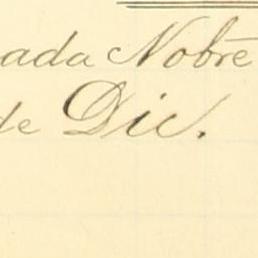 ada Nobre
de Dic.